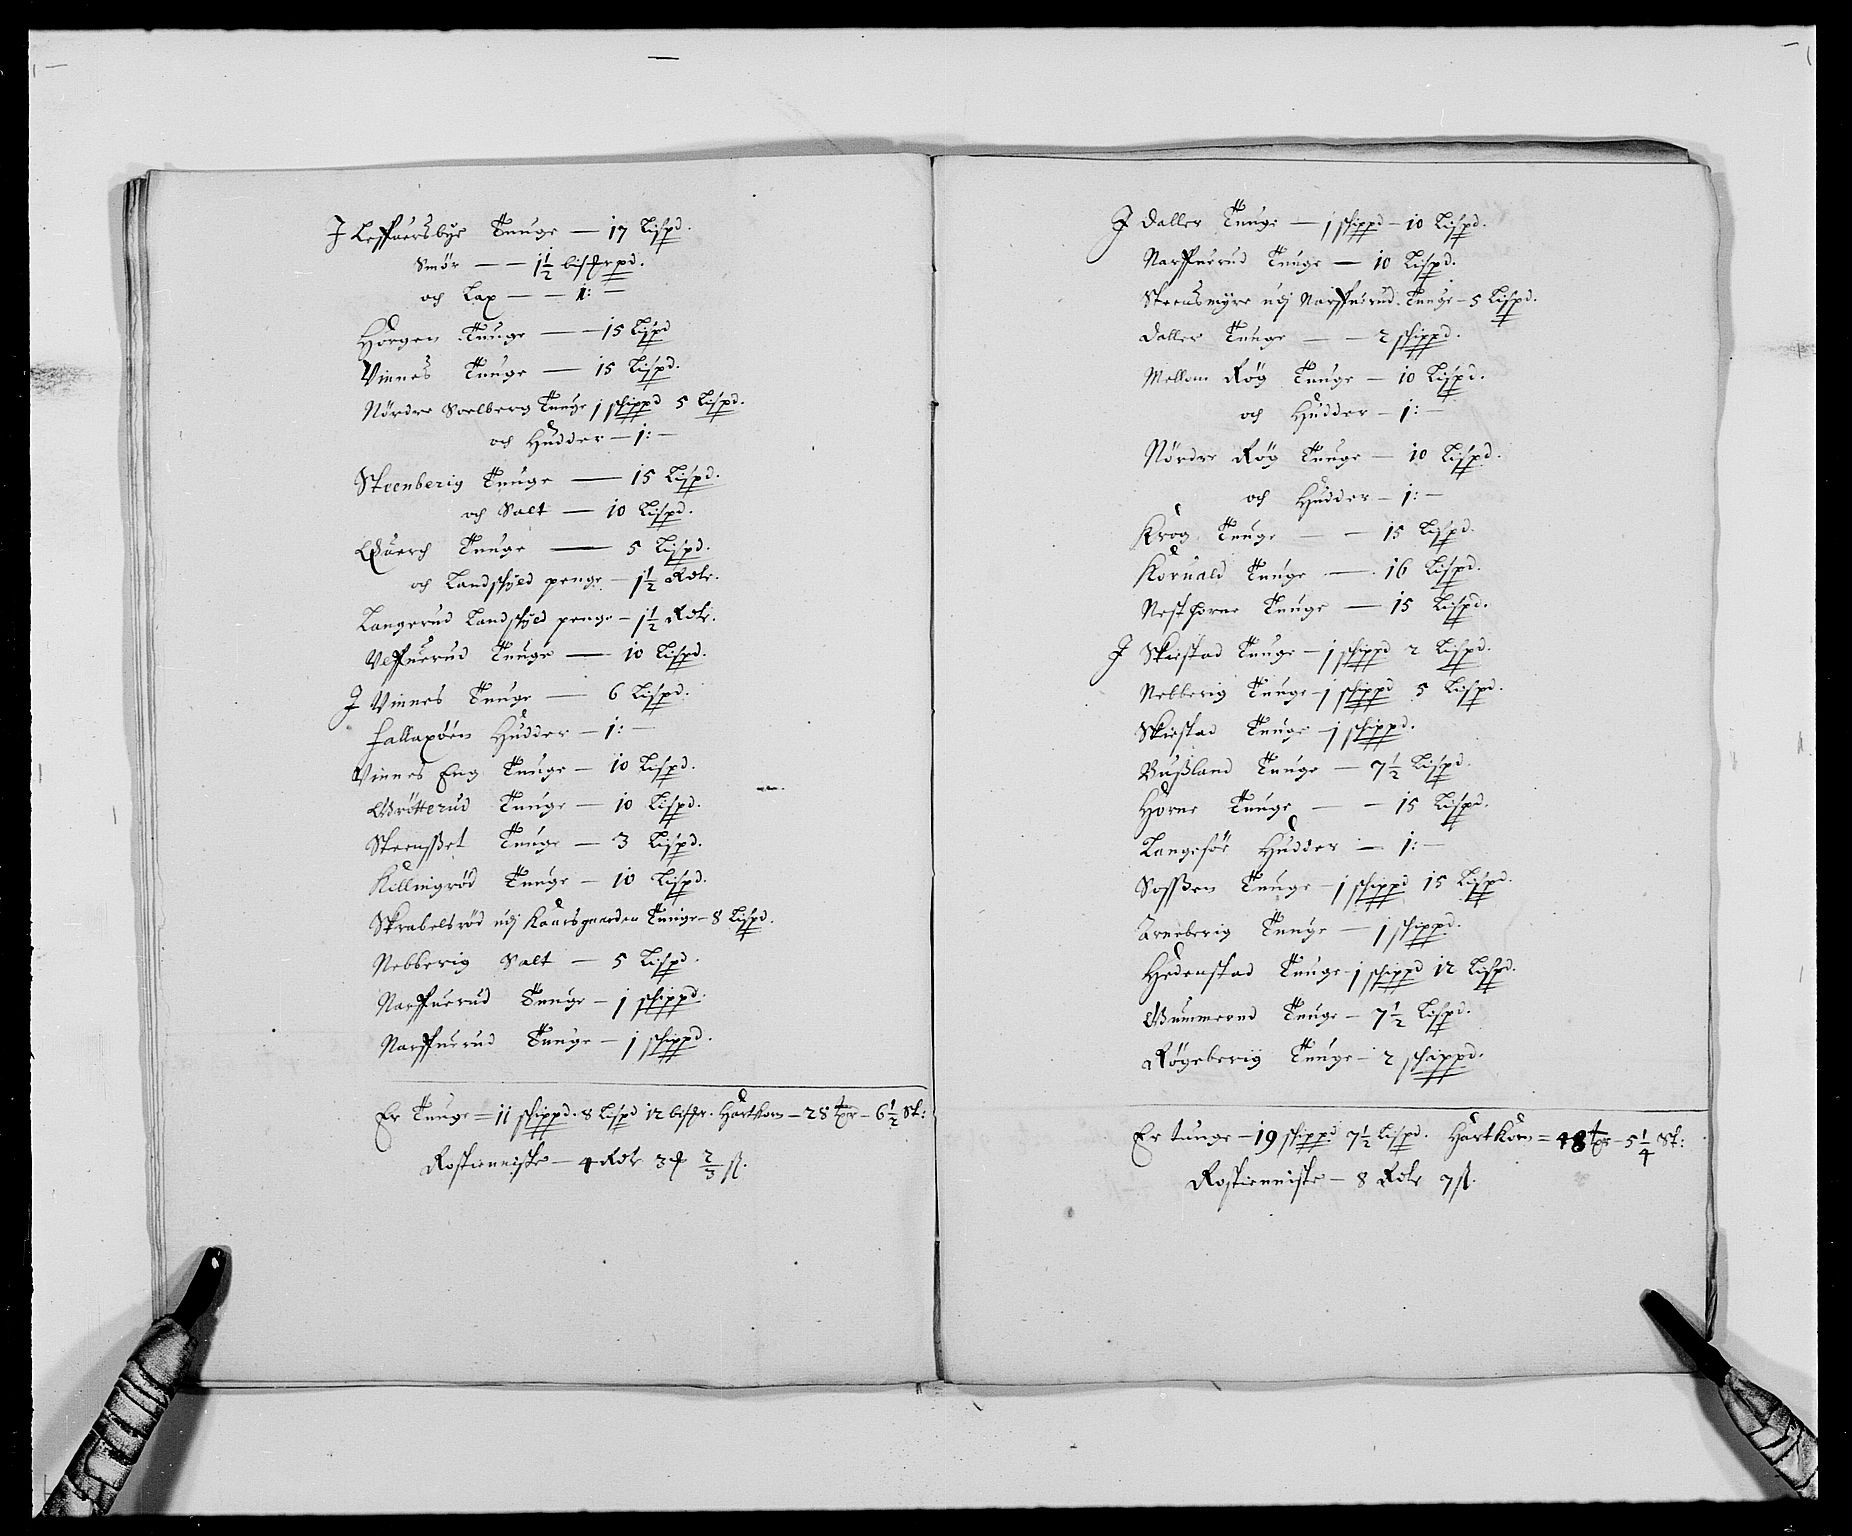 J Leffuersbye Tunge — 17 Lispd.
Smör — — 1½ bismrpd.
och Lax — — 1: —
Horgen Tunge — — 15 Lispd
Vinnes Tunge — 15 Lispd.
Nördre Soelberg Tunge 1 schippd 5 Lispd.
och Hudder — 1: —
Steenberig Tunge — 15 Lispd.
och Salt — 10 Lispd.
Tunge — 5 Lispd.
och Landschyld penge — 1½ Rdlr.
Langerud Landschyld penge — 1½ Rdlr.
Ulffuerud Tunge — 10 Lispd.
J Vinnes Tunge — 6 Lispd.
Fallaxöen Hudder — 1: —
Vinnes Eng Tunge — 10 Lispd.
Grötterud Tunge — 10 Lispd.
Steensset Tunge — 3 Lispd.
Killingröd Tunge — 10 Lispd.
Skrabelsröd udj Kaarsgaarden Tunge — 8 Lispd.
Nebberig Salt — 5 Lispd.
Narffuerud Tunge — 1 schippd.
Narffuerud Tunge — 1 schippd.
Er Tunge = 11 schippd. 8 Lispd 12 bismr. Hartkorn — 28 tpr — 6½ Sk:
Rostienniste — 4 Rdlr 3 ₰ ⅔ ß.
J Daller Tunge — 1 schippd — 10 Lispd.
Narffuerud Tunge — 10 Lispd.
Steensmyre udj Narffuerud Tunge — 5 Lispd.
Daller Tunge — — 2 schippd.
Mellom Rög Tunge — 10 Lispd.
och Hudder — 1: —
Nördre Rög Tunge — 10 Lispd.
och Hudder — 1: —
Krog Tunge — — 15 Lispd.
Koruald Tunge — 16 Lispd.
Nesthorne Tunge — 15 Lispd.
J Skiestad Tunge — 1 schippd 2 Lispd.
Nebberig Tunge — 1 schippd 5 Lispd.
Skiestad Tunge — 1 schippd.
Bußland Tunge — 7½ Lispd.
Horne Tunge — — 15 Lispd.
Langeför Hudder — 1: —
Soßen Tunge — 1 schippd 15 Lispd.
Arneberig Tunge — 1 schippd.
Hedenstad Tunge — 1 schippd 12 Lispd.
Gummerud Tunge — 7½ Lispd.
Rögeberig Tunge — 2 schippd.
Er tunge — 19 schippd 7½ Lispd. Hartkorn = 48 tpr — 5¼ Sk:
Rostienniste — 8 Rdlr 7 ß.